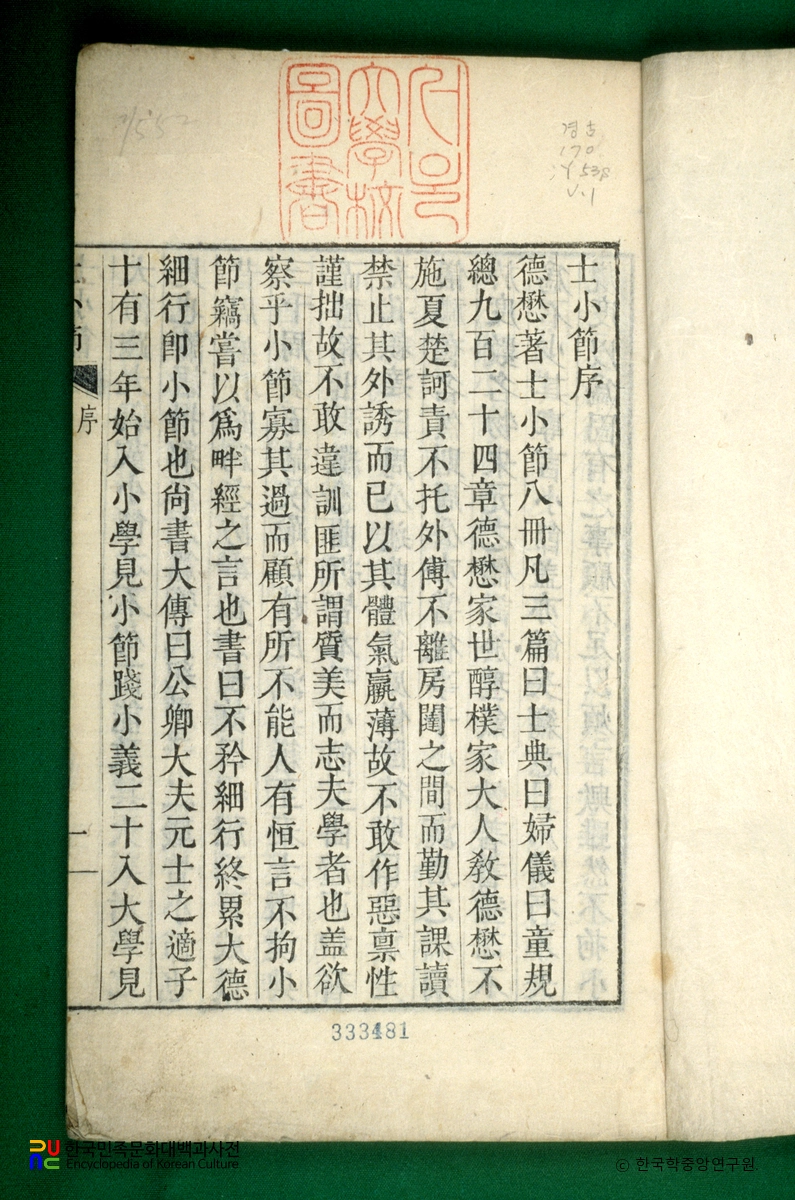 士小節序
德懋著士小節八冊凡三篇曰士典曰婦儀曰童規
總九百二十四章德懋家世醇樸家大人教德懋不
施夏楚訶責不托外傅不離房闥之間而勤其課讀
禁止其外誘而已以其體氣羸薄故不敢作惡稟性
謹拙故不敢違訓匪所謂質美而志夫學者也盖欲
察乎小節寡其過而顧有所不能人有恒言不拘小
節竊嘗以爲畔經之言也書曰不矜細行終累大德
細行卽小節也尙書大傳曰公卿大夫元士之適子
十有三年始入小學見小節踐小義二十入大學見
序
一
大學校
圖書
경古
170
V.1
333481
한국민족문화대백과사전
Encyclopedia of Korean Culture
© 한국학중앙연구원